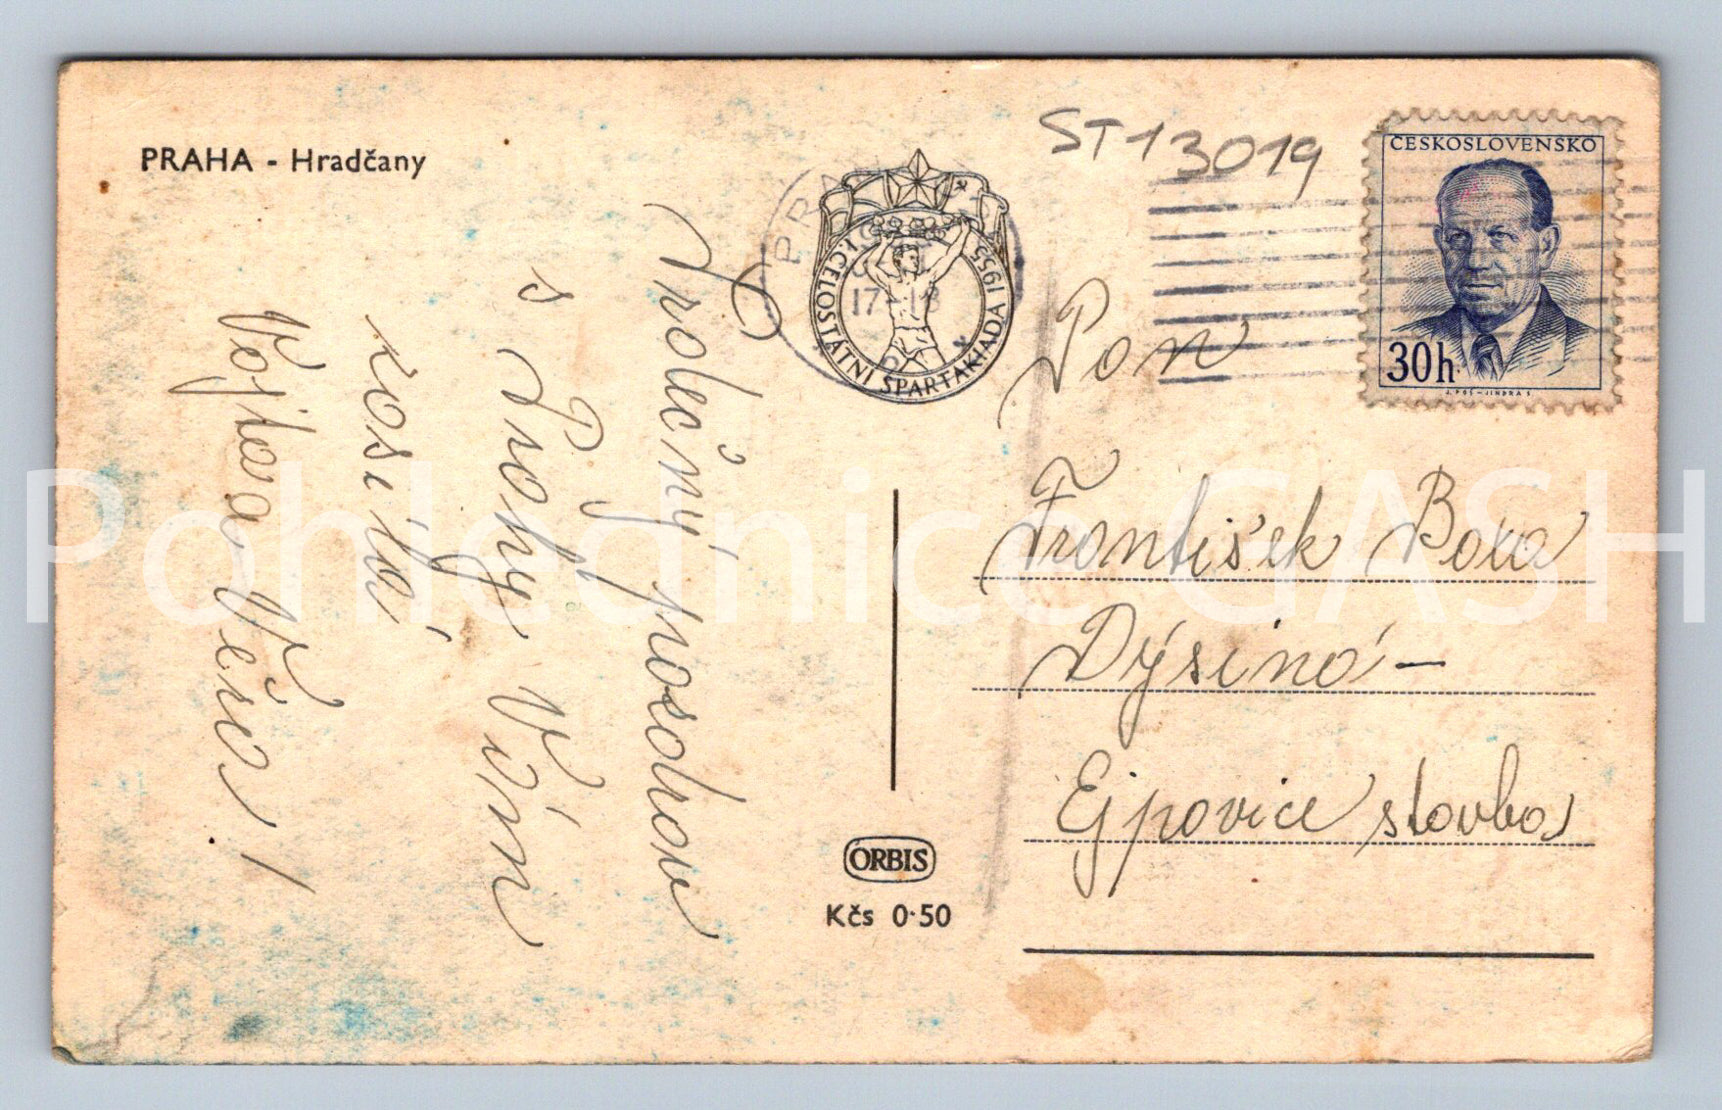 PRAHA - Hradčany
ST13019
ČESKOSLOVENSKO
30h
J. POŠ - JINDRA S
PRAHA
17-18
I. CELOSTÁTNÍ SPARTAKIÁDA 1955
Srdečný pozdrav
s Prahy Vám
zasílá
Vojtova Věra!
Pan
František Boxa
Dýsiná -
Ejpovice stavba
ORBIS
Kčs 0·50
Pohlednice GASH